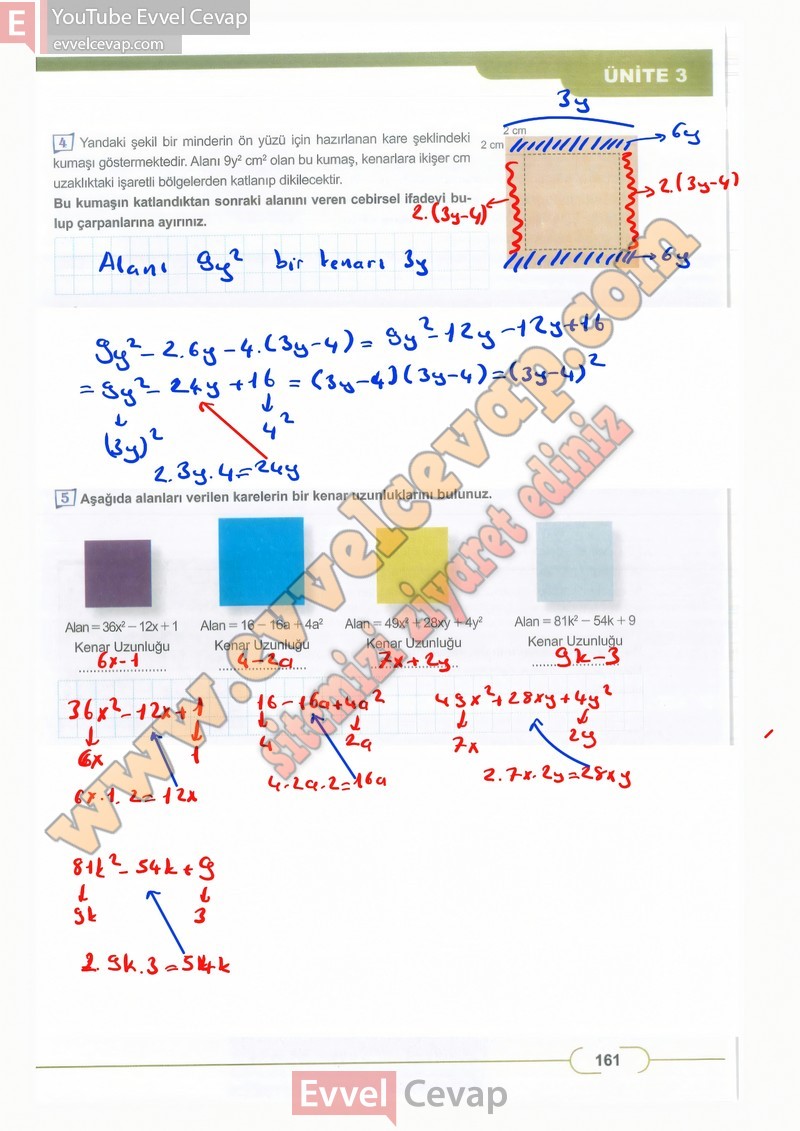 E YouTube Evvel Cevap
evvelcevap.com
ÜNİTE 3
4 Yandaki şekil bir minderin ön yüzü için hazırlanan kare şeklindeki
kumaşı göstermektedir. Alanı 9y² cm² olan bu kumaş, kenarlara ikişer cm
uzaklıktaki işaretli bölgelerden katlanıp dikilecektir.
Bu kumaşın katlandıktan sonraki alanını veren cebirsel ifadeyi bu-
lup çarpanlarına ayırınız.
3y
2 cm
2 cm
6y
2.(3y-4)
2.(3y-4)
6y
Alanı 9y² bir kenarı 3y
9y² - 2.6y - 4.(3y-4) = 9y² - 12y - 12y + 16
= 9y² - 24y + 16 = (3y-4)(3y-4) = (3y-4)²
(3y)² 4²
2.3y.4 = 24y
5 Aşağıda alanları verilen karelerin bir kenar uzunluklarını bulunuz.
Alan = 36x² – 12x + 1 Alan = 16 – 16a + 4a² Alan = 49x² + 28xy + 4y² Alan = 81k² – 54k + 9
Kenar Uzunluğu Kenar Uzunluğu Kenar Uzunluğu Kenar Uzunluğu
6x-1 4-2a 7x+2y 9k-3
36x² - 12x + 1 16 - 16a + 4a² 49x² + 28xy + 4y²
6x 1 4 2a 7x 2y
6x.1.2 = 12x 4.2a.2 = 16a 2.7x.2y = 28xy
81k² - 54k + 9
9k 3
2.9k.3 = 54k
www.evvelcevap.com
sitemizi ziyaret ediniz
161
Evvel Cevap